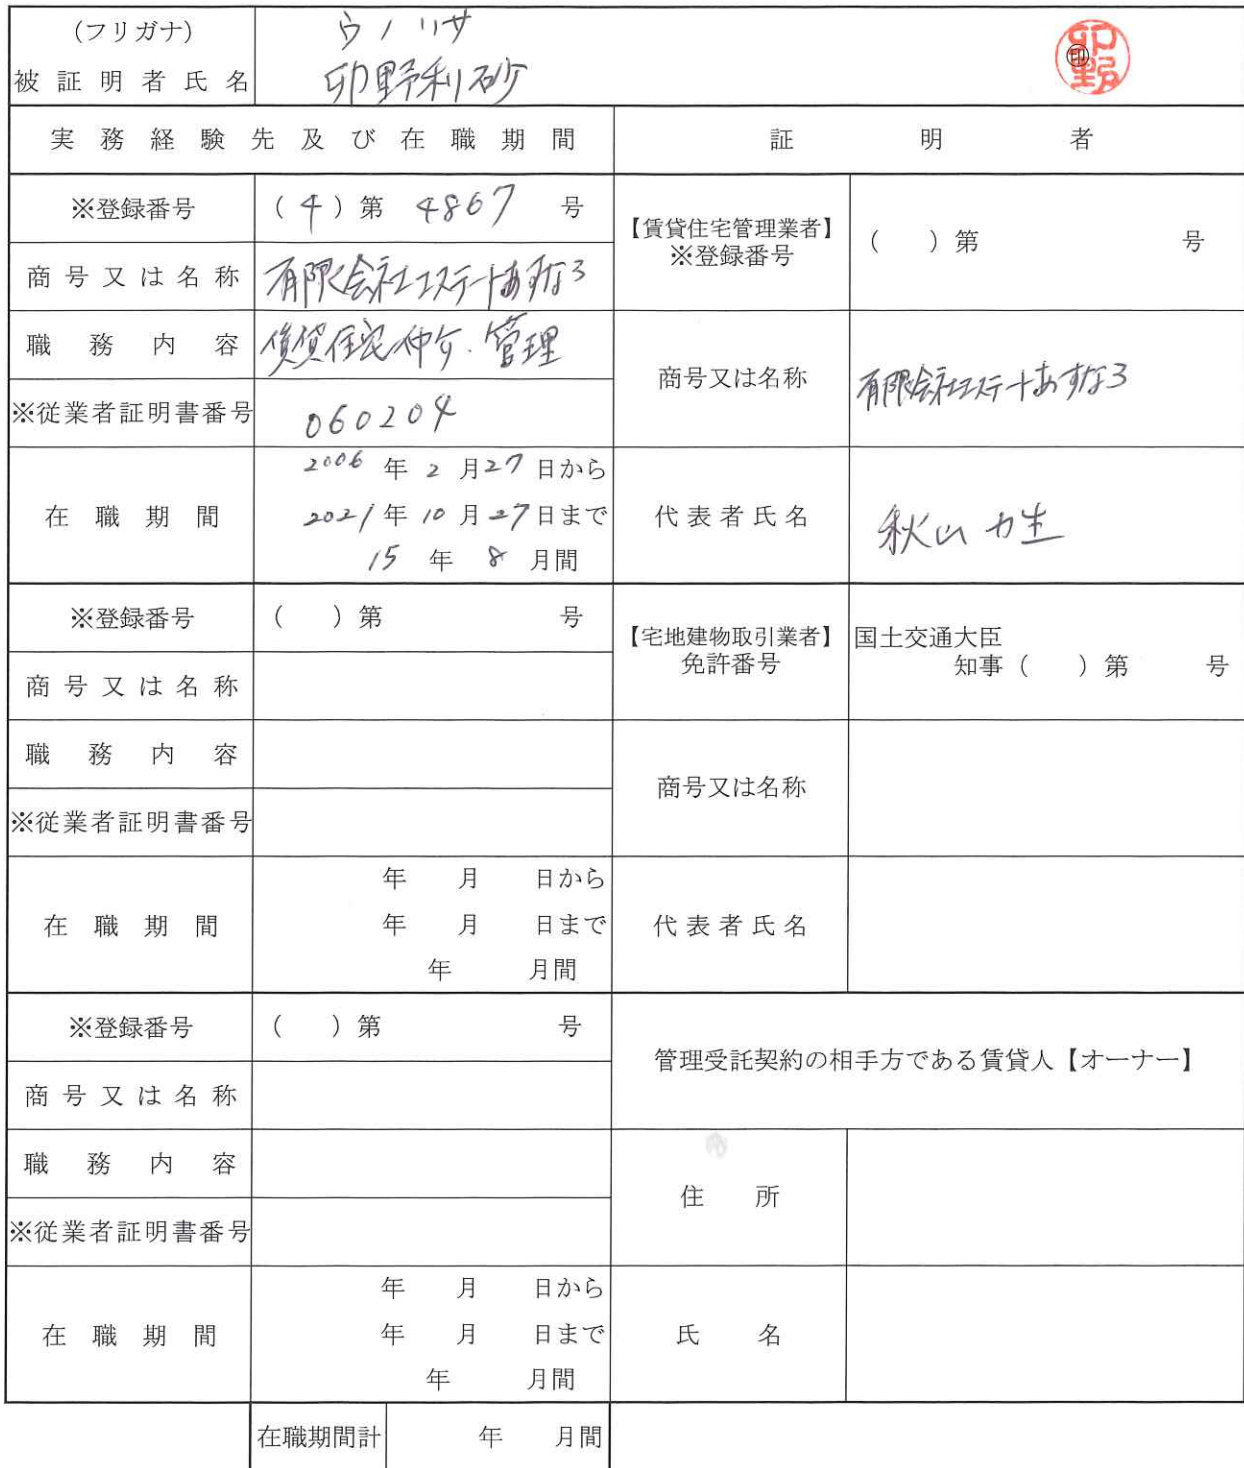 (フリガナ) ウノ リサ
被証明者氏名 卯野利砂 ㊞ 卯野
実務経験先及び在職期間 証明者
※登録番号 (4)第 4867 号 【賃貸住宅管理業者】 ※登録番号 ( )第 号
商号又は名称 有限会社エステートあすなろ
職務内容 賃貸住宅仲介・管理 商号又は名称 有限会社エステートあすなろ
※従業者証明書番号 060204
在職期間 2006年2月27日から
2021年10月27日まで 代表者氏名 秋山力生
15年8月間
※登録番号 ( )第 号 【宅地建物取引業者】 免許番号 国土交通大臣
知事( )第 号
商号又は名称
職務内容 商号又は名称
※従業者証明書番号
在職期間 年 月 日から
年 月 日まで 代表者氏名
年 月間
※登録番号 ( )第 号 管理受託契約の相手方である賃貸人【オーナー】
商号又は名称
職務内容 住所
※従業者証明書番号
在職期間 年 月 日から
年 月 日まで 氏名
年 月間
在職期間計 年 月間